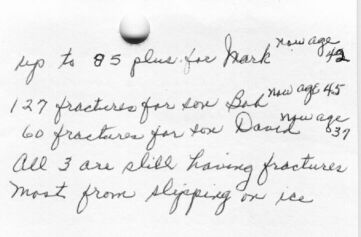 up to 85 plus for Mark now age 42
127 fractures for son Bob now age 45
60 fractures for son David now age 37
All 3 are still having fractures
most from slipping on ice